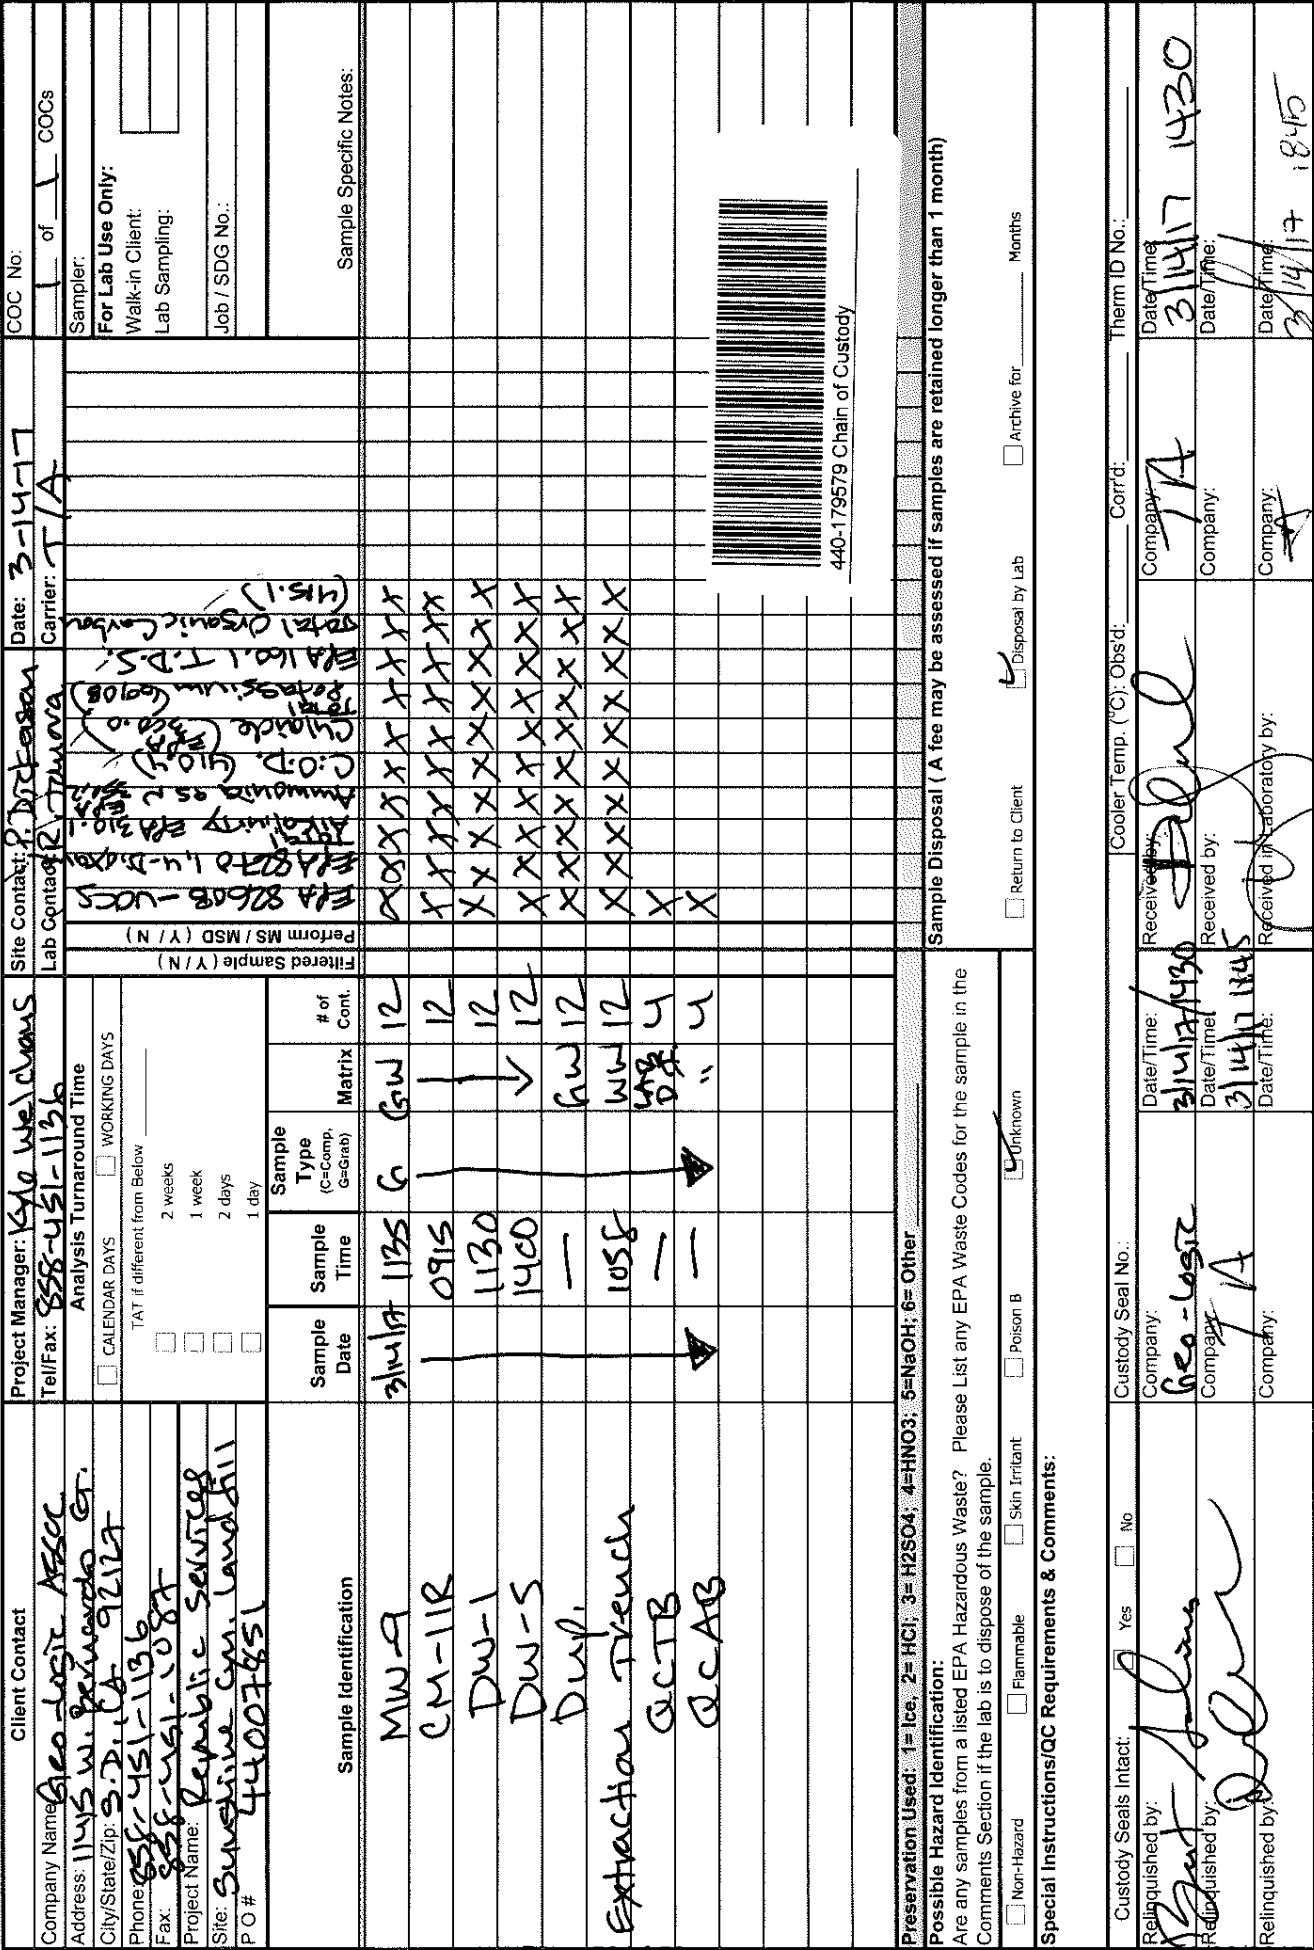 Client Contact
Company Name: Geo-Logic Assoc.
Address: 11415 W. Bernardo Ct.
City/State/Zip: S.D., CA 92127
Phone: 858-451-1136
Fax: 858-451-1087
Project Name: Republic Services
Site: Sunshine Cyn. Landfill
P O # 44007851
Project Manager: Kyle Welchans
Tel/Fax: 858-451-1136
Analysis Turnaround Time
CALENDAR DAYS WORKING DAYS
TAT if different from Below
2 weeks
1 week
2 days
1 day
Site Contact: P. Dickason
Lab Contact:
Date: 3-14-17
Carrier: T/A
COC No:
1 of 1 COCs
Sampler:
For Lab Use Only:
Walk-in Client:
Lab Sampling:
Job / SDG No.:
Sample Identification
Sample Date
Sample Time
Sample Type (C=Comp, G=Grab)
Matrix
# of Cont.
Filtered Sample ( Y / N )
Perform MS / MSD ( Y / N )
EPA 8260B-VOCS
EPA 8270 1,4-Dioxan
Total Alkalinity EPA 310.1
Ammonia as N EPA 350.2
C.O.D. (410.4)
(EPA 300.0)
Total Potassium (6010B)
EPA 160.1 T.D.S.
Total Organic Carbon (415.1)
Sample Specific Notes:
MW-9 3/14/17 1135 G GW 12 X X X X X X X X X X
CM-11R 0915 12 X X X X X X X X X X
DW-1 1130 12 X X X X X X X X X X
DW-5 1400 12 X X X X X X X X X X
Dup. — GW 12 X X X X X X X X X X
Extraction Trench 1058 WW 12 X X X X X X X X X X
QCTB — 4 X
QCAB — " 4 X
440-179579 Chain of Custody
Preservation Used: 1= Ice, 2= HCl; 3= H2SO4; 4=HNO3; 5=NaOH; 6= Other
Possible Hazard Identification:
Are any samples from a listed EPA Hazardous Waste? Please List any EPA Waste Codes for the sample in the
Comments Section if the lab is to dispose of the sample.
Non-Hazard Flammable Skin Irritant Poison B Unknown
Sample Disposal ( A fee may be assessed if samples are retained longer than 1 month)
Return to Client Disposal by Lab Archive for Months
Special Instructions/QC Requirements & Comments:
Custody Seals Intact: Yes No
Custody Seal No.:
Cooler Temp. (°C): Obs'd: Corr'd:
Therm ID No.:
Relinquished by:
Company: Geo-Logic
Date/Time: 3/14/17/1430
Received by:
Company: TA
Date/Time: 3/14/17 1430
Relinquished by:
Company: TA
Date/Time: 3/14/17 1845
Received by:
Company:
Date/Time:
Relinquished by:
Company:
Date/Time:
Received in Laboratory by:
Company:
Date/Time: 3/14/17 1845